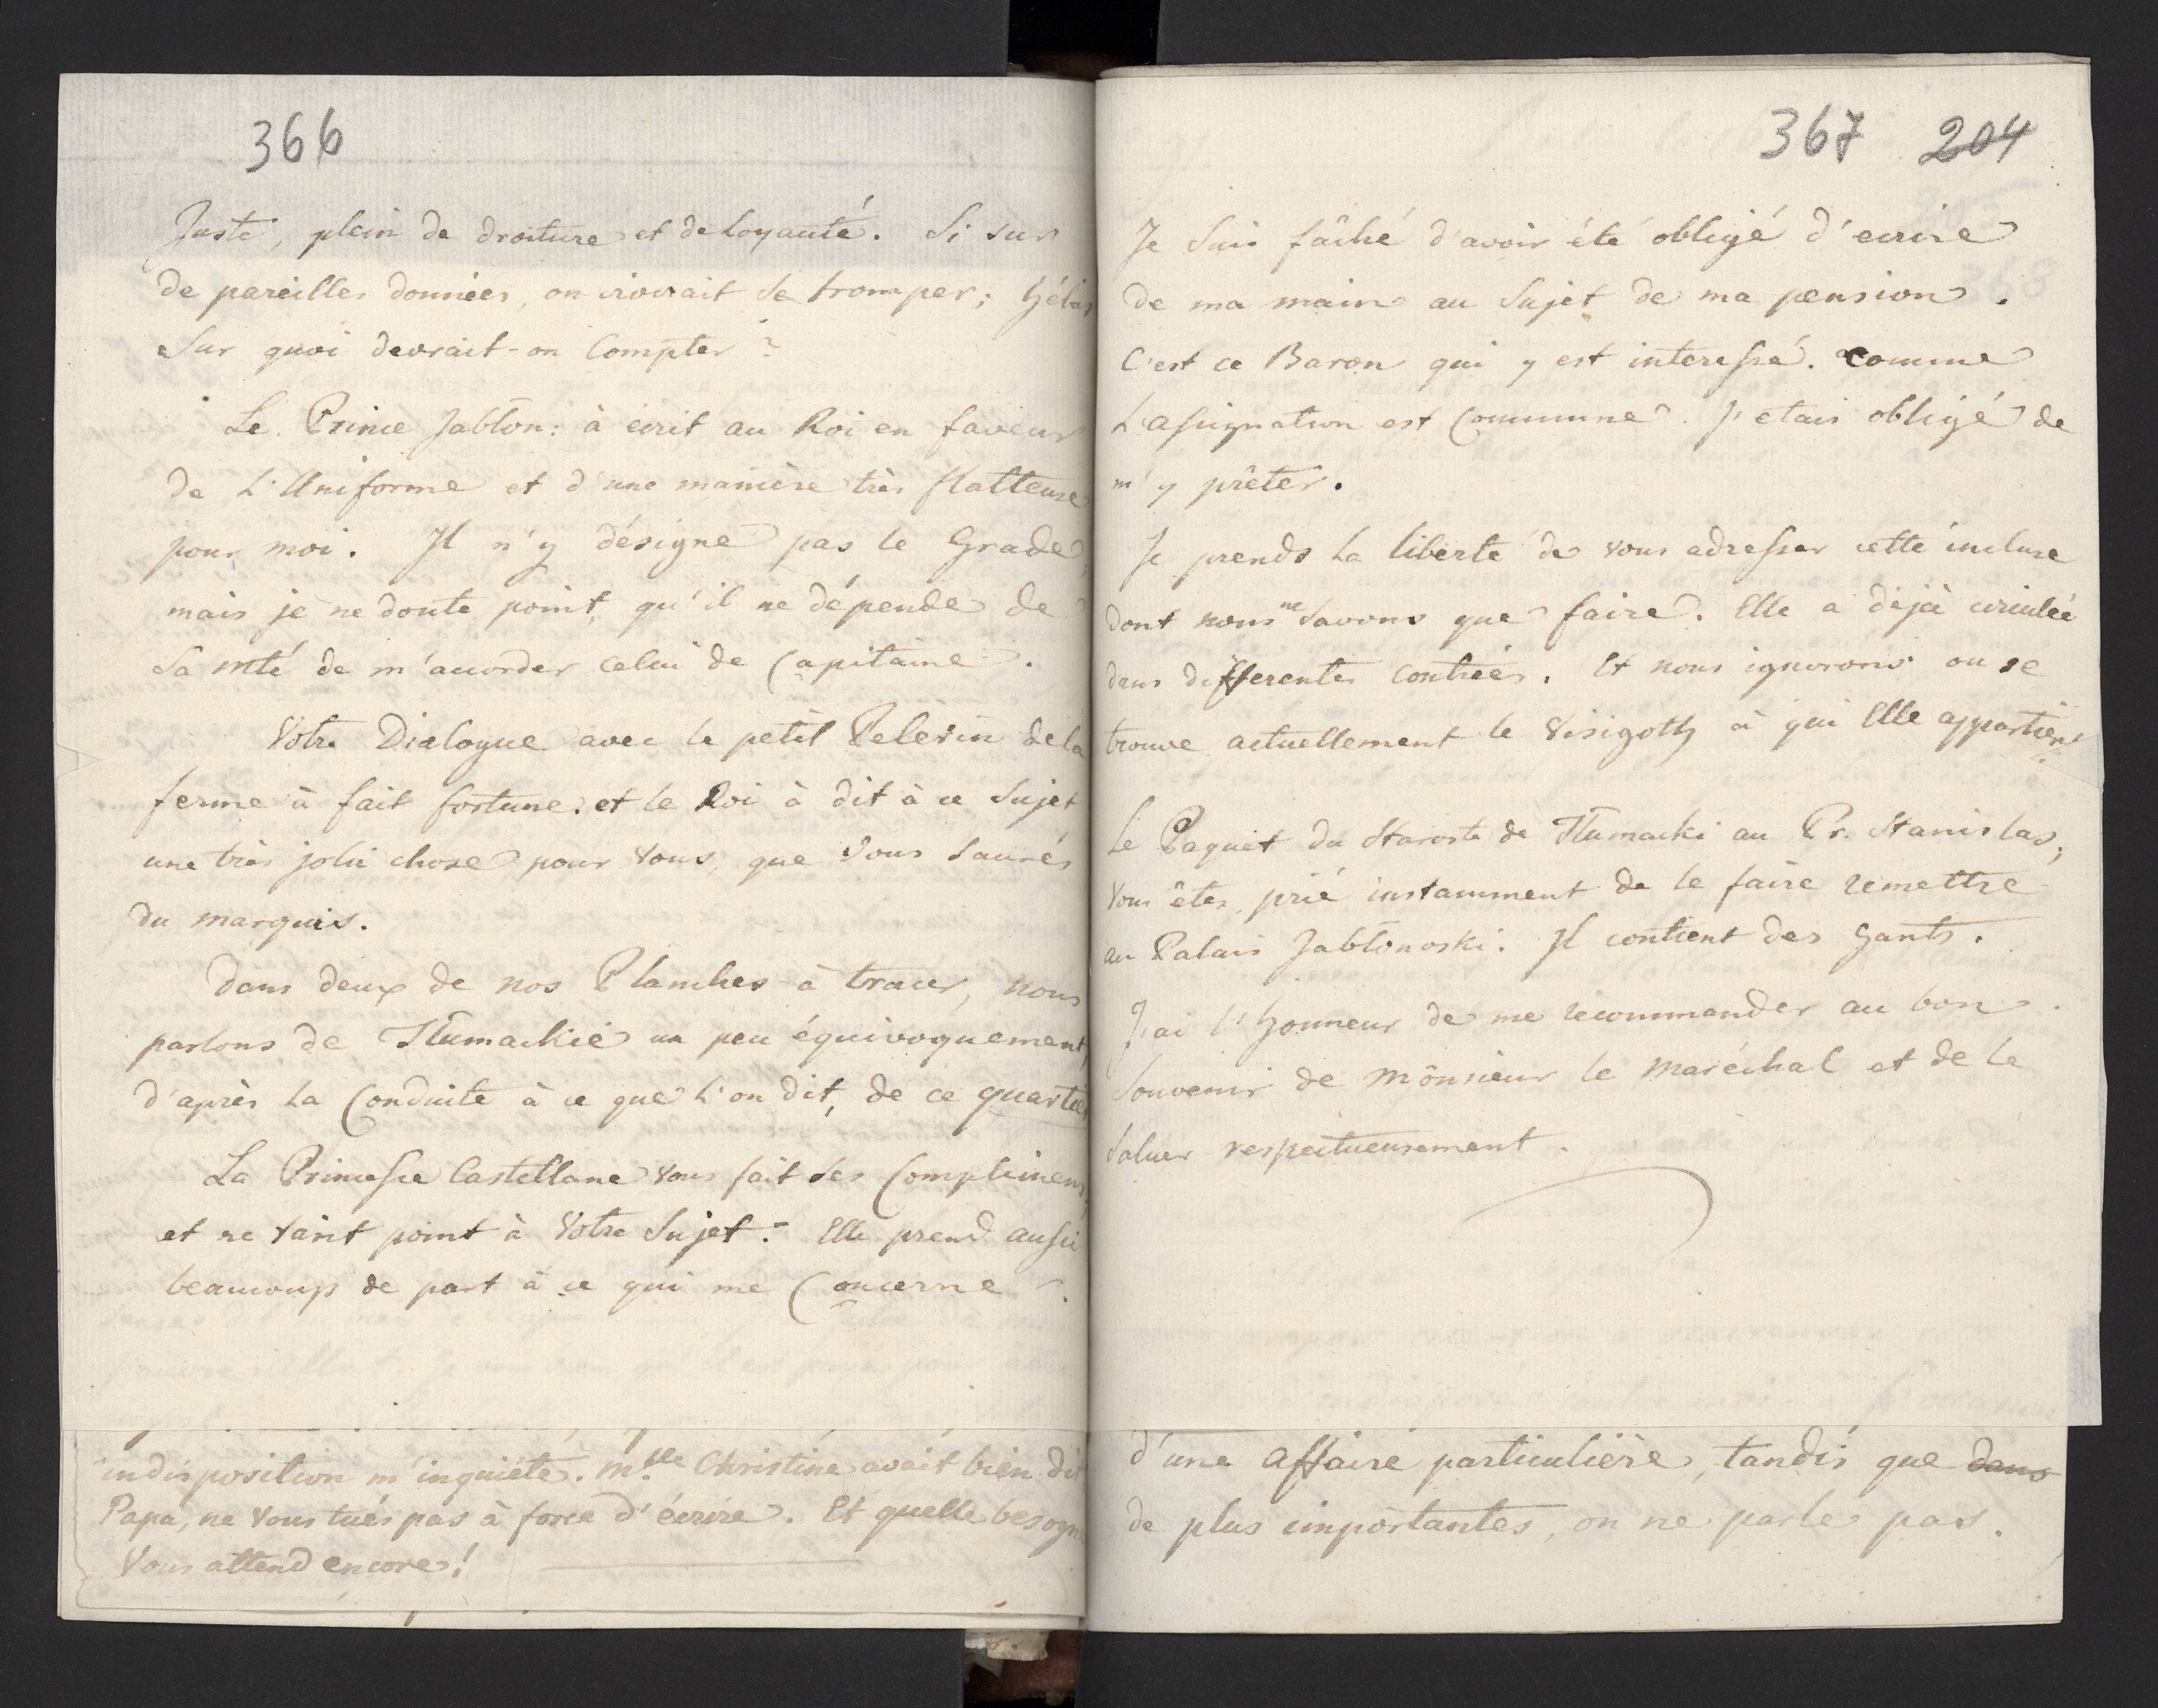 366
Juste, plein de droiture et de Loyauté. Si sur
de pareilles données, on croirait se tromper; hélas
Sur quoi devrait-on Compter?
Le Prince Jablon: à écrit au Roi en faveur
de L'Uniforme et d'une manière très flatteuse
pour moi. Il n'y désigne pas le Grade,
mais je ne doute point, qu'il ne dépende de
Sa Mté de m'accorder celui de Capitaine.
Votre Dialogue avec le petit Pelerin de la
ferme à fait fortune. et le Roi à dit à ce Sujet
une très jolie chose pour Vous, que Vous saurés
du Marquis.
Dans deux de nos Planches à tracer, nous
parlons de Tłumackie un peu équivoquement,
d'après La Conduite à ce que L'on dit, de ce quartier
La Princesse Castellane Vous fait ses Complimens,
et ne tarit point à Votre Sujet. Elle prend aussi
beaucoup de part à ce qui me Concerne.
indisposition m'inquiéte. Mslle Christine avait bien dit
Papa, ne Vous tués pas à force d'écrire. Et quelle besogne
Vous attend encore!
367 204
Je Suis fâché d'avoir été obligé d'ecrire
de ma main au Sujet de ma pension.
C'est ce Baron qui y est interessé. comme
L'assignation est Commune. J'etais obligé de
m'y prêter.
Je prends La liberté de vous adresser cette incluse
dont nous ne Savons que faire. Elle a déjà circulée
dans differentes contrées. Et nous ignorons ou se
trouve actuellement le Visigoth à qui Elle appartient
Le Paquet du Staroste de Tłumacki au Pr. Stanislas,
Vous êtes prié instamment de le faire remettre
au Palais Jablonoski. Il contient des Gants.
J'ai l'honneur de me recommander au bon
Souvenir de Monsieur le Maréchal et de le
Saluer respectueusement.
d'une affaire particulière, tandis que dans
de plus importantes, on ne parle pas.